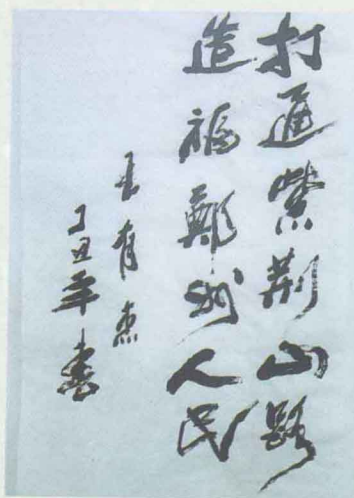 打通紫荆山路
造福鄭州人民
王有杰
丁丑年書